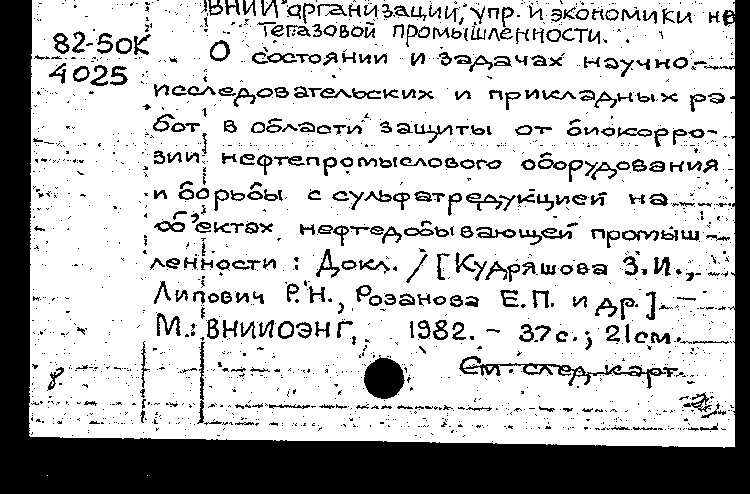 ВНИИ организации, упр. и экономики неф
тегазовой промышленности.
82-50К
4025
О состоянии и задачах научно-
исследовательских и прикладных ра-
бот в области защиты от биокорро-
зии нефтепромыслового оборудования
и борьбы с сульфатредукцией на
об'ектах нефтедобывающей промыш-
ленности : Докл. / [Кудряшова З.И.,
Липович Р.Н., Розанова Е.П. и др.]
М.: ВНИИОЭНГ, 1982. - 37с.; 21см.
См. след. карт.
р.